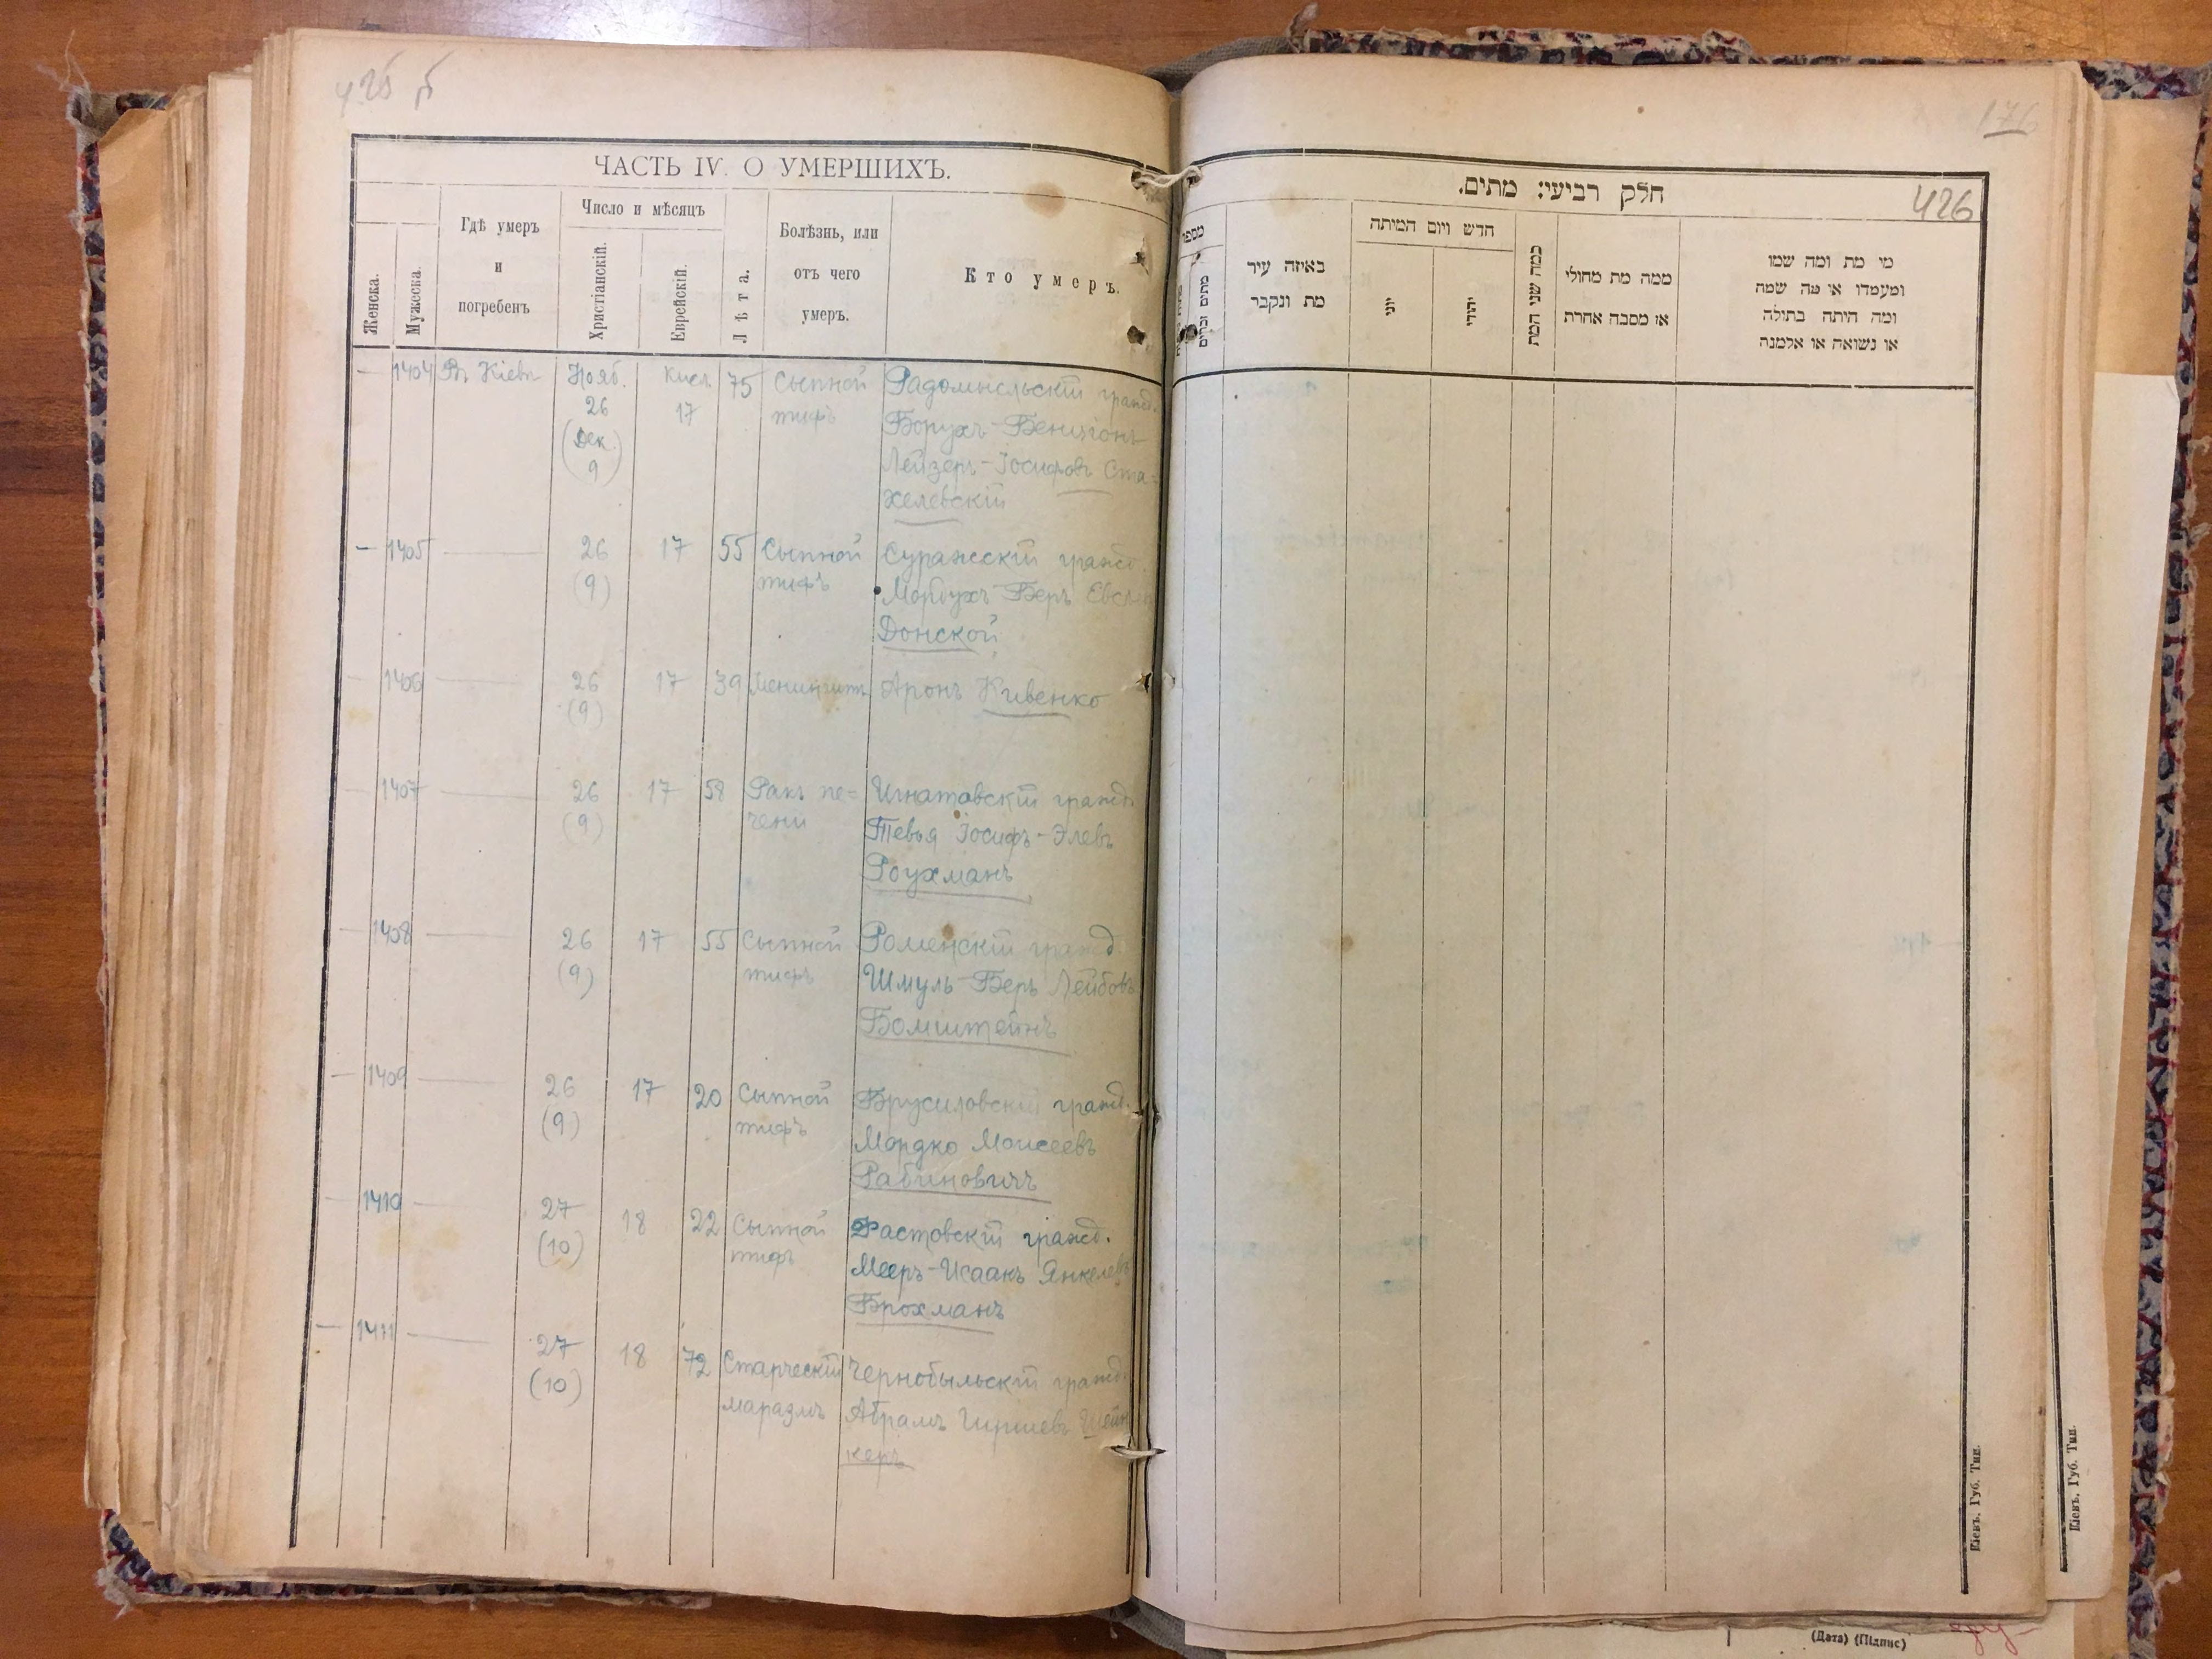 426
ЧАСТЬ IV. О УМЕРШИХЪ.
Женска.
Мужеска.
Гдѣ умеръ
и
погребенъ
Число и мѣсяцъ
Христіанскій.
Еврейскій.
Лѣта.
Болѣзнь, или
отъ чего
умеръ.
Кто умеръ.
— 1404 Въ Кіевѣ Нояб. Кисл. 75 Сыпной Радомысльскій гражд.
26 17 тифъ Борухъ-Бенціонъ
(Дек. Лейзеръ-Іосифовъ Ста=
9) хелевскій
— 1405 — 26 17 55 Сыпной Суражскій гражд.
(9) тифъ Мордухъ-Беръ
Донской
— 1406 — 26 17 39 Менингитъ Аронъ Кивенко
(9)
— 1407 — 26 17 58 Ракъ пе= Игнатовскій гражд.
(9) чени Тевья Іосифъ-Элевъ
Роухманъ
— 1408 — 26 17 55 Сыпной Роменскій гражд.
(9) тифъ Шмуль-Беръ Лейбовъ
Бомштейнъ
— 1409 — 26 17 20 Сыпной Брусиловскій гражд.
(9) тифъ Мордко Моисеевъ
Рабиновичъ
— 1410 — 27 18 22 Сыпной Фастовскій гражд.
(10) тифъ Мееръ-Исаакъ Янкелевъ
Брохманъ
— 1411 — 27 18 72 Старческій Чернобыльскій гражд.
(10) маразмъ Абрамъ Гершевъ Шейн
керъ
176
426
חלק רביעי: מתים.
מספר
מתים זכרים
באיזה עיר
מת ונקבר
חדש ויום המיתה
יוני
יהודי
כמה שני המת
ממה מת מחולי
או מסבה אחרת
מי מת ומה שמו
ומעמדו או מה שמה
ומה היתה בתולה
או נשואה או אלמנה
Кіевъ, Губ. Тип.
Кіевъ, Губ. Тип.
(Дата) (Підпис)